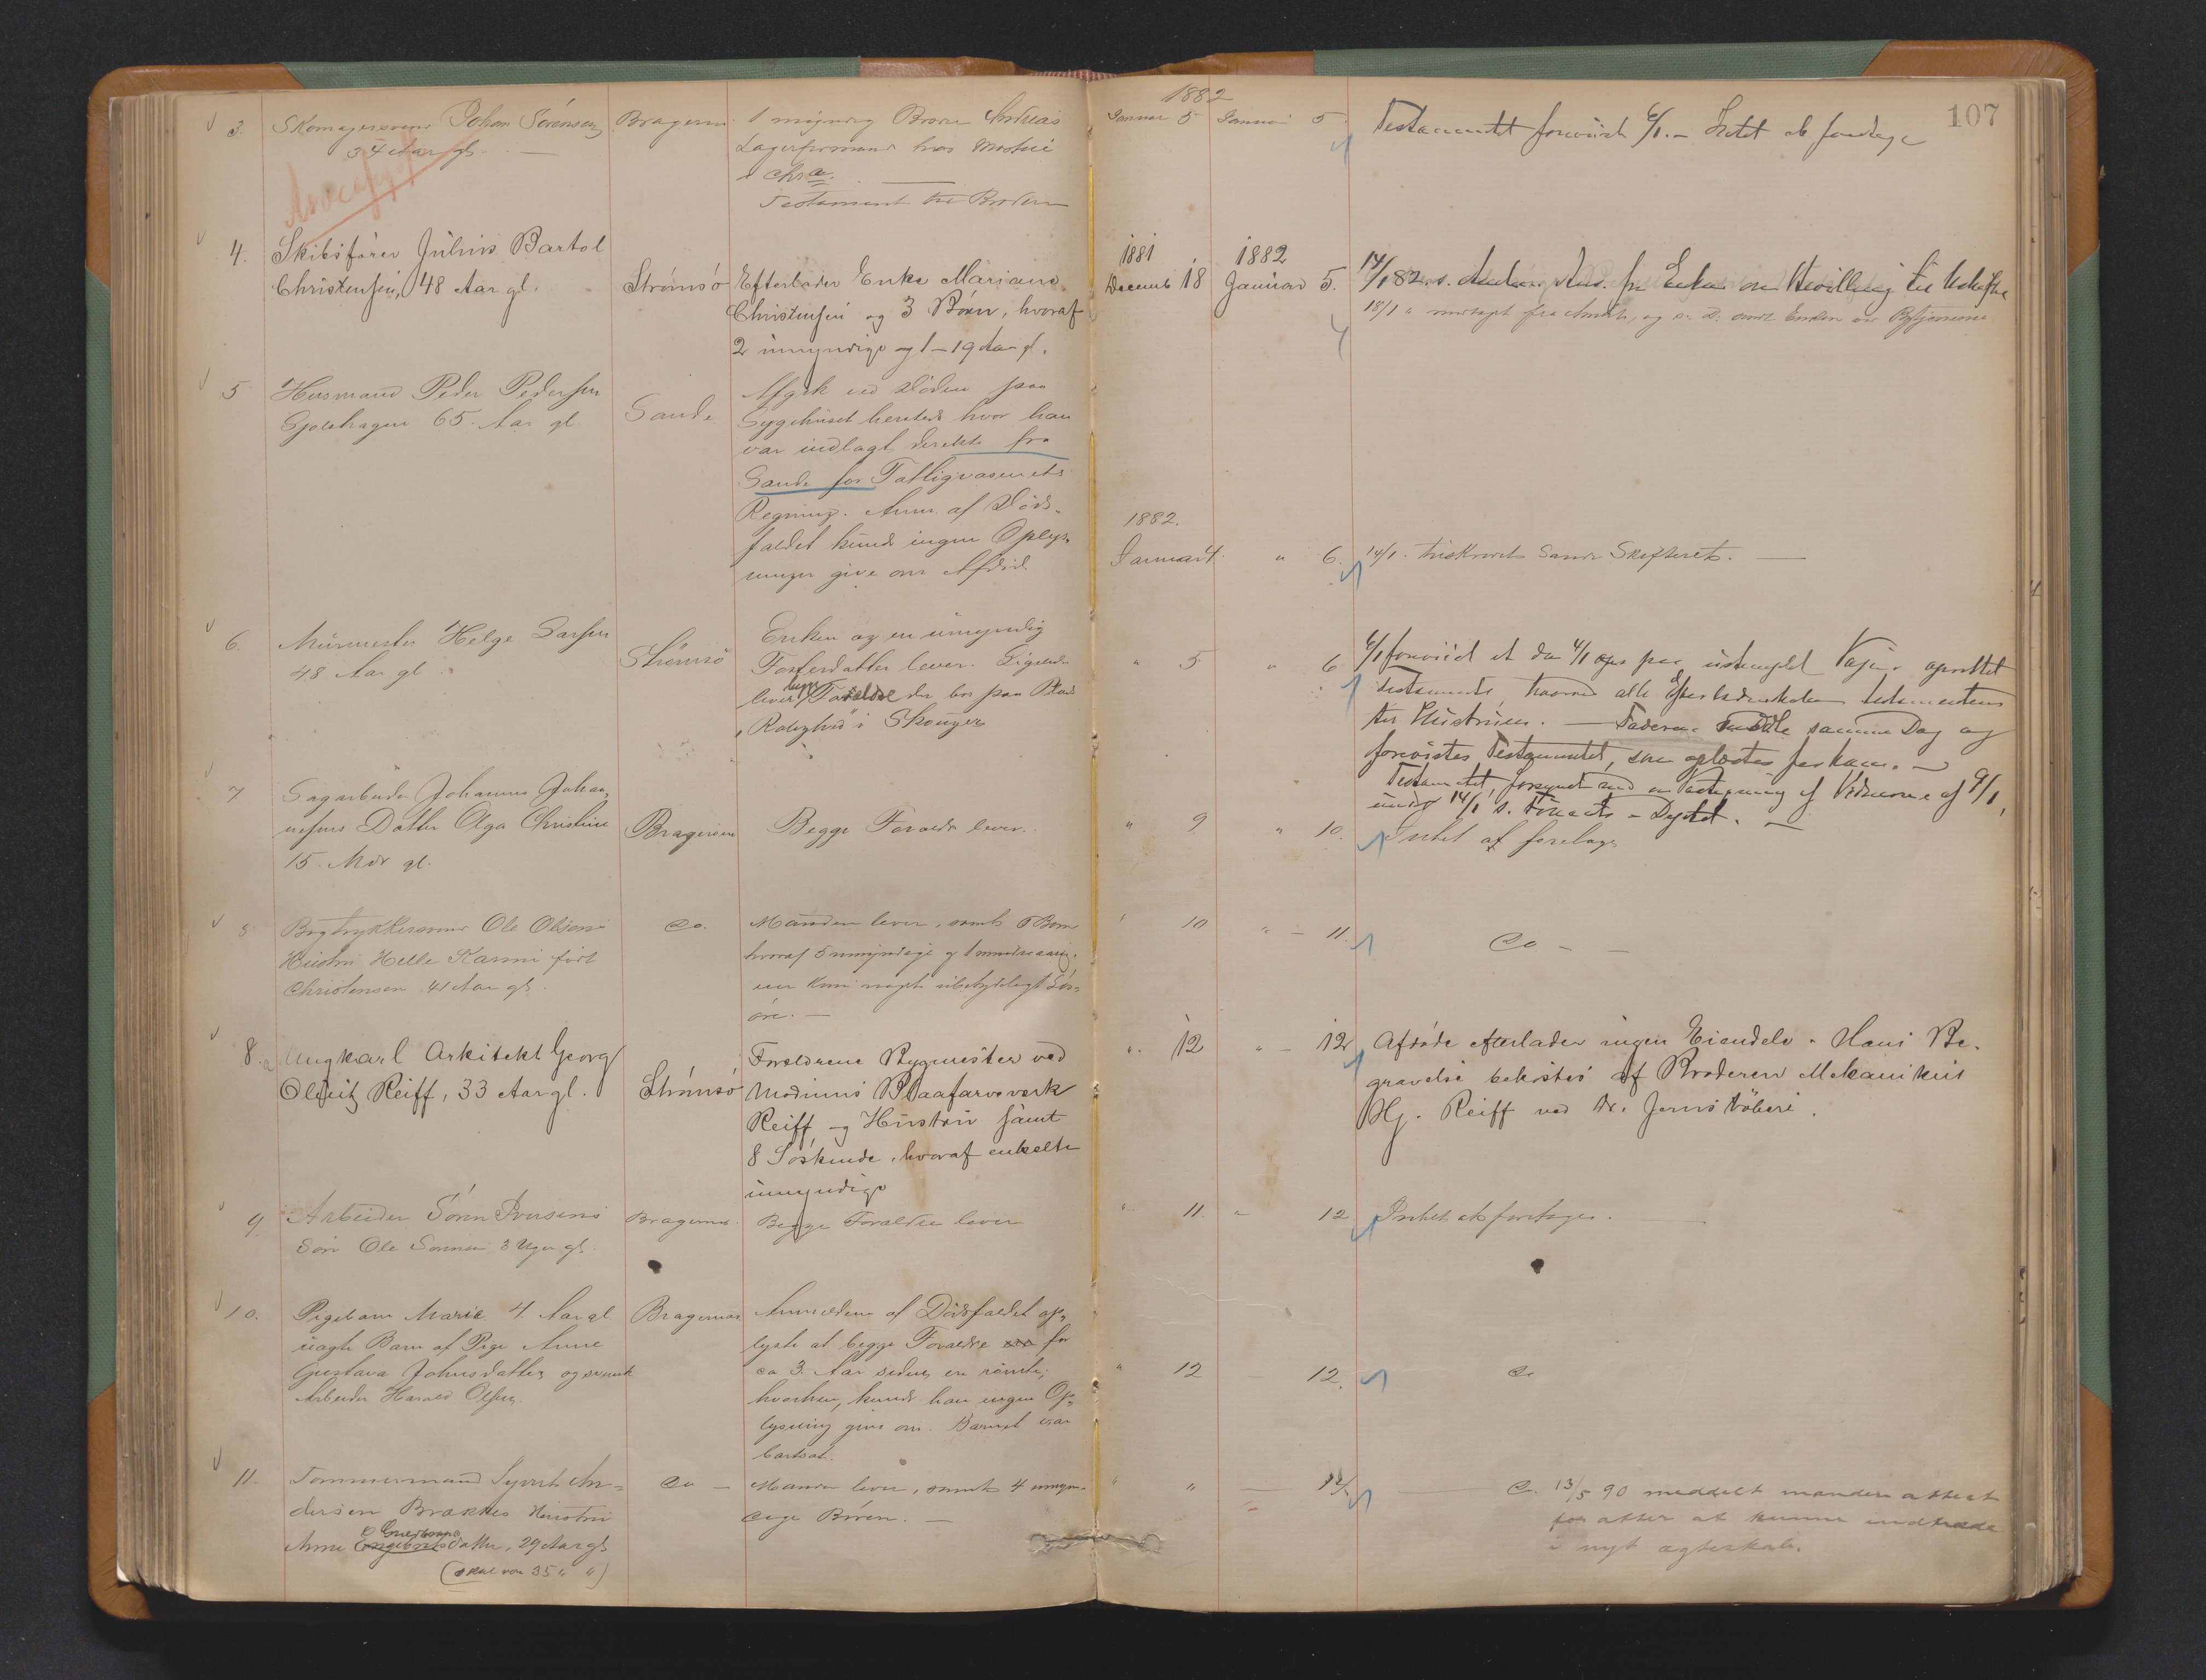 107
3.
Skomagersvend Johan Sörensen
34 Aar gl.
Bragernes
1 myndig Broder Andreas
Lagerformand hos
i Chra.
Testament til Broderen
1882
Januar 5
Januar 5.
Testamentet forevist 6/1. – Intet at foretage
4.
Skibsförer Julius Bartol
Christensen, 48 Aar gl.
Strömsö
Efterlader Enke Mariane
Christensen og 3 Börn, hvoraf
2 umyndige og 1 – 19 Aar gl.
1881
Decemb 18
1882
Januar 5.
14/1 82 s. fra Enken om Bevilling til Uskifte
18/1 " modtaget fra Amtet, og s. D. Enken
5
Husmand Peder Pedersen
65 Aar gl
Sande
Afgik ved Döden paa
Sygehuset hersteds hvor han
var indlagt derekte fra
Sande for Fattigvæsenets
Regning. Anm. af Döds-
faldet kunde ingen Oplys-
ninger give om Afdöd.
1882.
Januar 4.
" 6.
14/1. tilskrevet Sande Skifteret. —
6.
Murmester Helge Larsen
48 Aar gl
Strömsö
Enken og en umyndig
Fosterdatter lever. Ligeledes
lever begge Forældre der bor paa Plads
Rolighed i Skouger
" 5
" 6
6/1 forevist et den 4/1 paa ustemplet Papir oprettet
Testamente, hvorved alle Efterladenskaber testamenteres
til Hustruen. — Faderen mödte samme Dag og
forevistes Testamentet, som oplæstes for ham. —
Testamentet, forsynet med en Paategning af Vidnerne af 9/1,
14/1 s.
7
Sagarbeider Johannes Johan-
nesens Datter Olga Christine
15 Mdr gl.
Bragernes
Begge Forældre lever.
" 9
" 10.
Intet at foretage
8
Bogtrykkersvend Ole Olsens
Hustru Helle Karine föd
Christensen 41 Aar gl.
do.
Manden lever, samt 6 Börn
hvoraf 5 umyndige og 1 mindreaarig.
kun noget ubetydeligt Lös-
öre. —
" 10
" – 11.
do –
8.a
Ungkarl Arkitekt Georg
Reiff, 33 Aar gl.
Strömsö
Forældrene Bygmester ved
Modums Blaafarveværk
Reiff og Hustru samt
8 Söskende, hvoraf enkelte
umyndige
" 12
" – 12
Afdöde efterlader ingen Eiendele. Hans Be-
gravelse bekostes af Broderen Mekanikus
Hj. Reiff ved Dr. Jernstöberi.
9.
Arbeider Sören Iversens
Sön Ole 3 Uger gl.
Bragernes.
Begge Forældre lever
" 11.
" 12
Intet at foretages.
10.
Pigebarn Marie 4 Aar gl
uægte Barn af Pige Anne
Gustava Johnsdatter og svensk
Arbeider Harald Olsen.
Bragernes
Anmelderen af Dödsfaldet op-
lyste at begge Forældre for
ca 3 Aar siden er römte,
hvorhen, kunde han ingen Op-
lysning give om. Barnet var
bortsat.
" 12
– 12.
do
11.
Tömmermand Syvert An-
dersen Brakkes Hustru
Anne Engebretsdatter, 29 Aar gl
(skal være 35 " ")
do –
Manden lever, samt 4 umyn-
dige Börn. —
" "
— 12/1
— do. 13/5 90 meddelt manden attest
for atter at kunne indtræde
i nyt ægteskab.